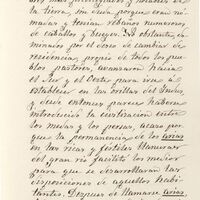 la tierra, son dos porque eran nó-
madas y tenian rebaños numerosos
de caballos y bueyes. No obstante, ca-
minados por el deseo de cambiar de
residencia, propio de todos los pue-
blos pastores, avanzaron hacia
el Sur y el Oeste para irse á
establecer en las orillas del Indus,
y desde entonces parece haberse
introducido la civilización entre
los medas y los persas, acaso por-
que la permanencia de los arias
en las ricas y fértiles llanuras
del gran rio facilitó los medios
para que se desarrollaran las
disposiciones de aquellos habi-
tantes. Despues de llamarse arias,